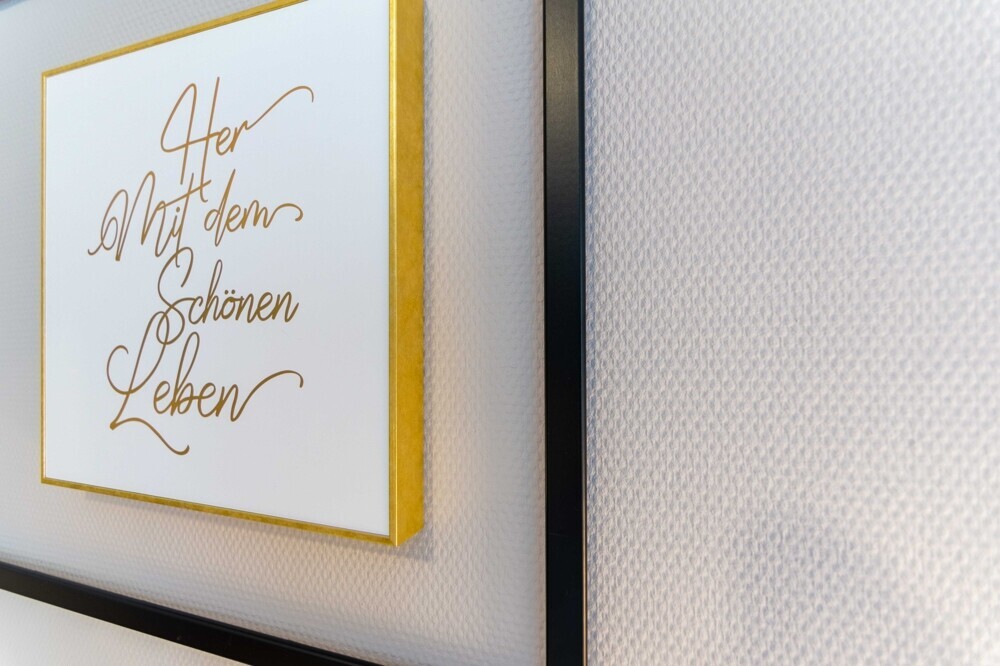 Her
Mit dem
Schönen
Leben